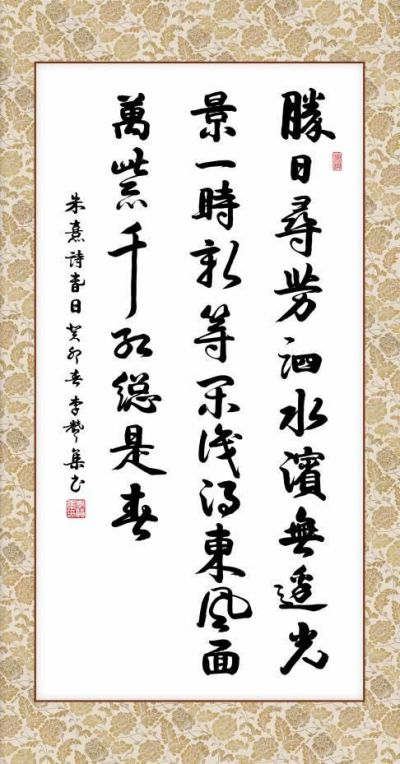 勝日尋芳泗水濱無邊光
景一時新等閑識得東風面
萬紫千紅總是春
朱熹詩春日癸卯春李集书